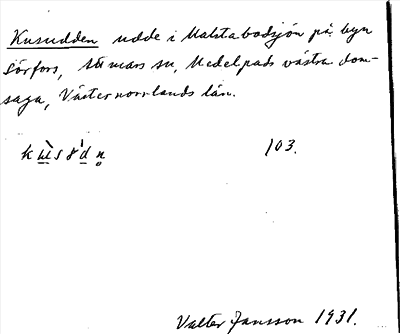 Kusudden udde i Malstabodsjön på byn
Sörfors, Attmars sn, Medelpads västra dom-
saga, Västernorrlands län.
103.
Valter Jansson 1931.